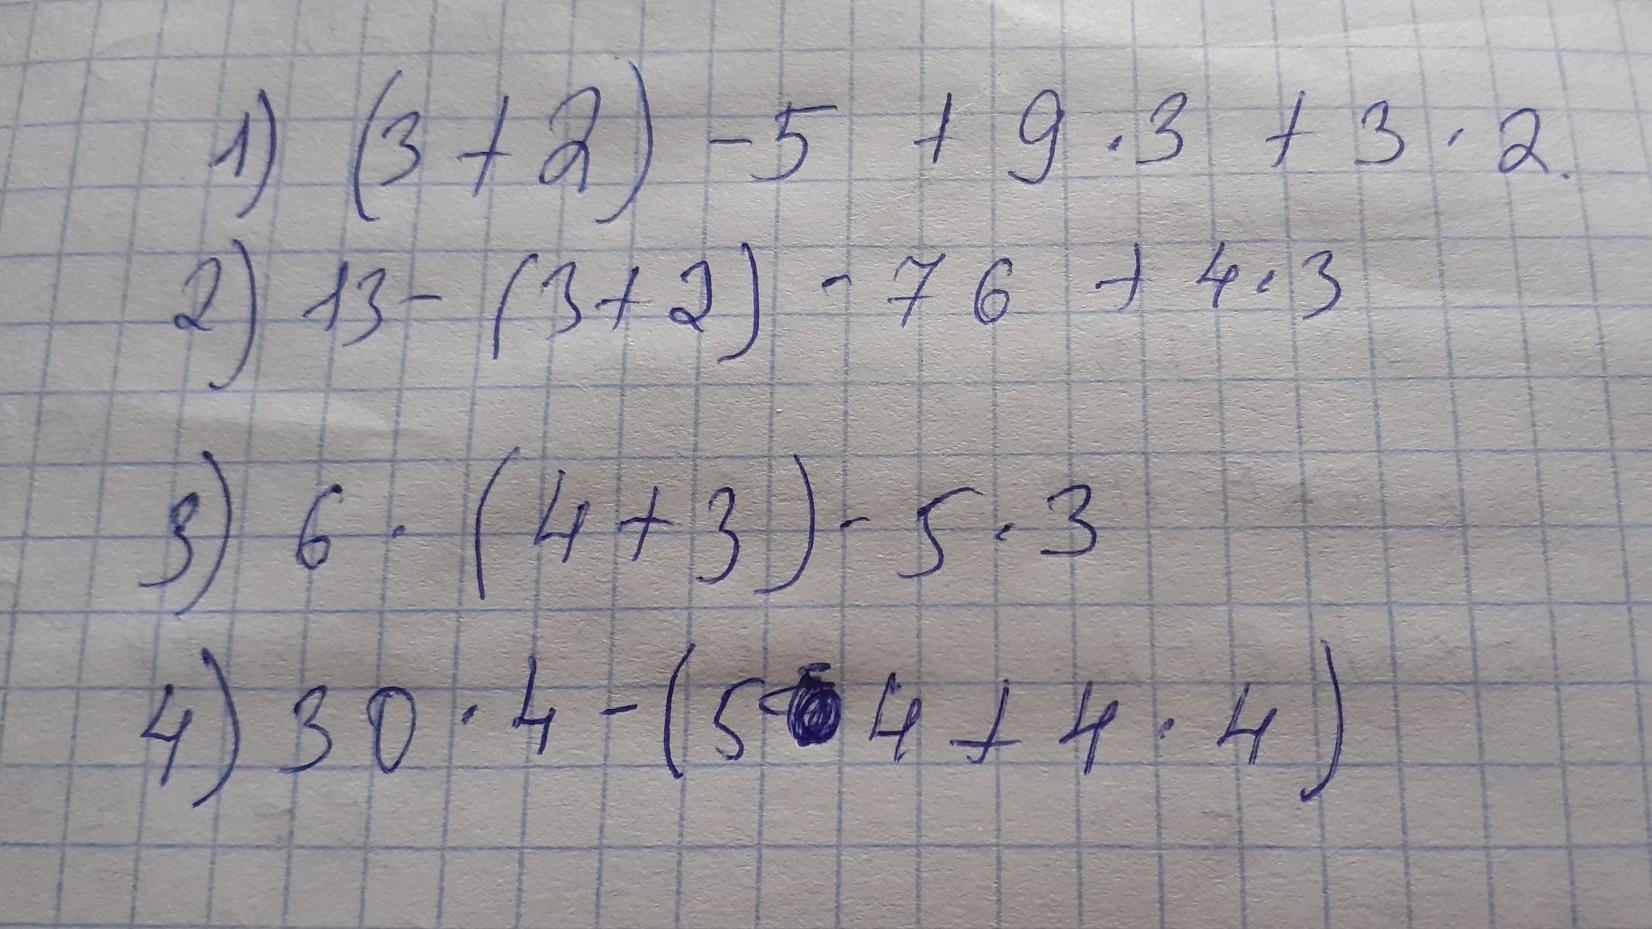 1) (3 + 2) - 5 + 9 · 3 + 3 · 2.
2) 13 - (3 + 2) - 76 + 4 · 3
3) 6 · (4 + 3) - 5 · 3
4) 30 · 4 - (5 4 + 4 · 4)